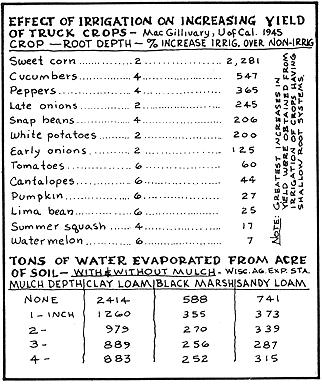 EFFECT OF IRRIGATION ON INCREASING YIELD
OF TRUCK CROPS - MacGillivary, U of Cal. 1945
CROP - ROOT DEPTH - % INCREASE IRRIG. OVER NON-IRRIG
Sweet corn ............ 2 ............ 2,281
Cucumbers ............ 4 ............ 547
Peppers ............ 4 ............ 365
Late onions ............ 2 ............ 245
Snap beans ............ 4 ............ 206
White potatoes ............ 2 ............ 200
Early onions ............ 2 ............ 125
Tomatoes ............ 6 ............ 60
Cantalopes ............ 6 ............ 44
Pumpkin ............ 6 ............ 27
Lima bean ............ 6 ............ 25
Summer squash ............ 4 ............ 17
Watermelon ............ 6 ............ 7
NOTE: GREATEST INCREASES IN
YIELD WERE OBTAINED FROM
IRRIGATION OF CROPS HAVING
SHALLOW ROOT SYSTEMS.
TONS OF WATER EVAPORATED FROM ACRE
OF SOIL - WITH & WITHOUT MULCH - WISC. AG. EXP. STA.
MULCH DEPTH CLAY LOAM BLACK MARSH SANDY LOAM
NONE 2414 588 741
1-INCH 1260 355 373
2- 979 270 339
3- 889 256 287
4- 883 252 315